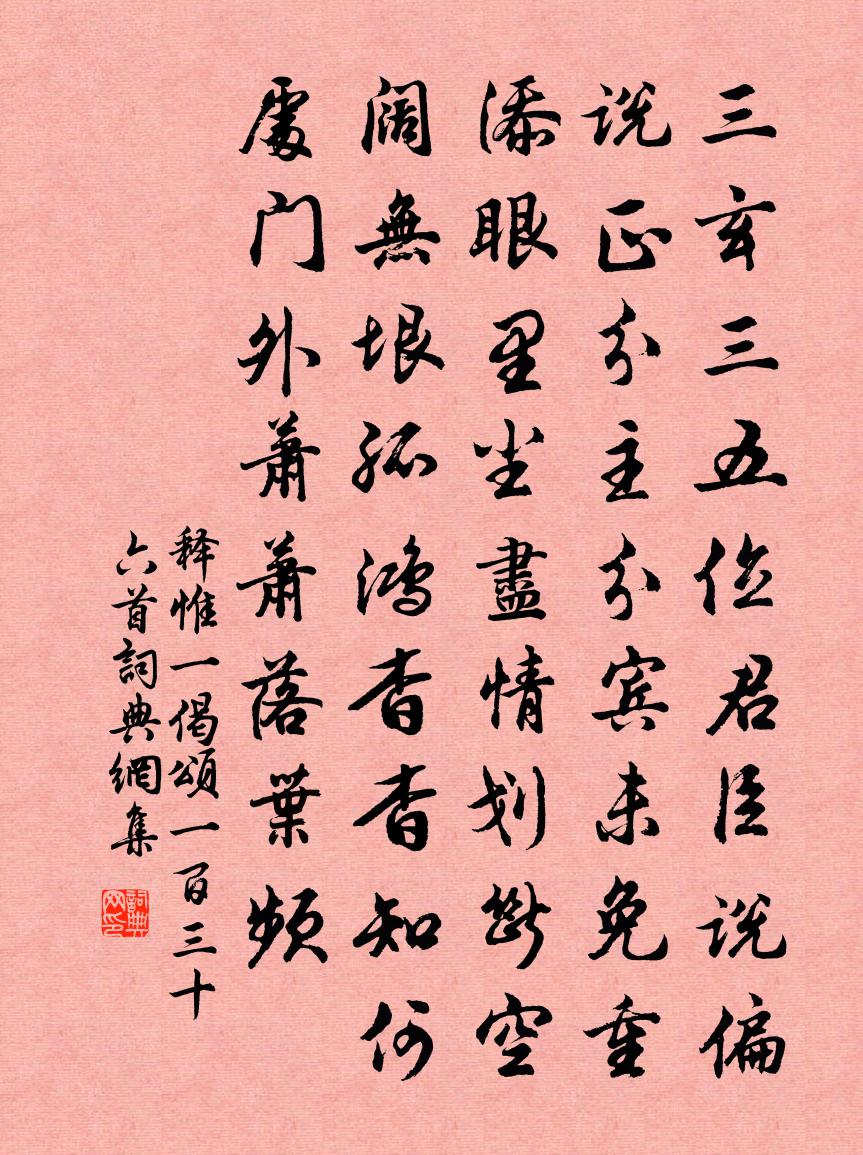 三玄三五位君臣说偏
说正分主分宾未免重
添眼里尘尽情划断空
阔無垠孤鸿杳杳知何
處门外萧萧落葉频
释惟一偈頌一百三十
六首詞典網集
詞典网印